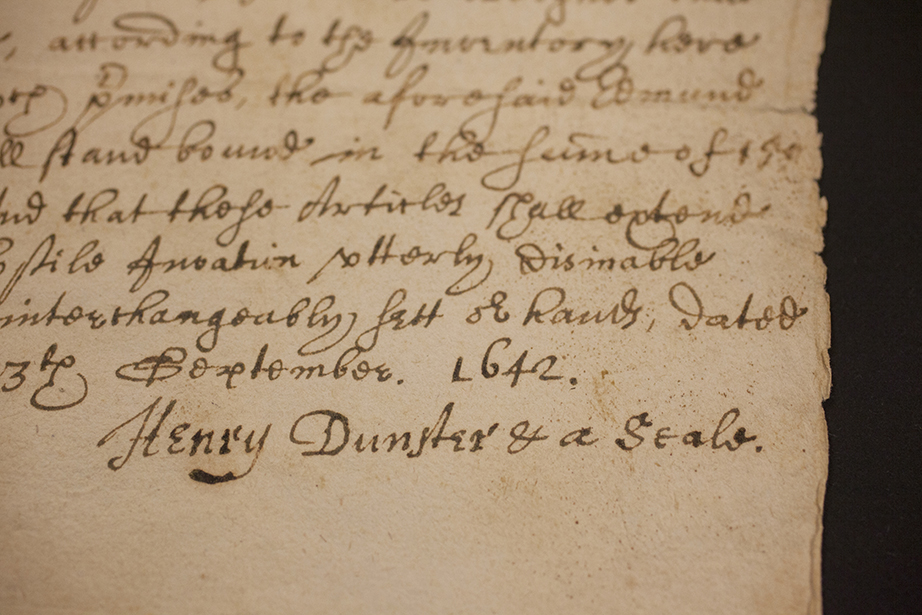 according to the Inventory here
p̄mises, the aforesaid Edmund
ll stand bound in the sum̄e of 150
nd that these Articles shall extend
ostile Invation vtterly disinable
interchangeably sett or hands, dated
3th September. 1642.
Henry Dunster & a Seale.